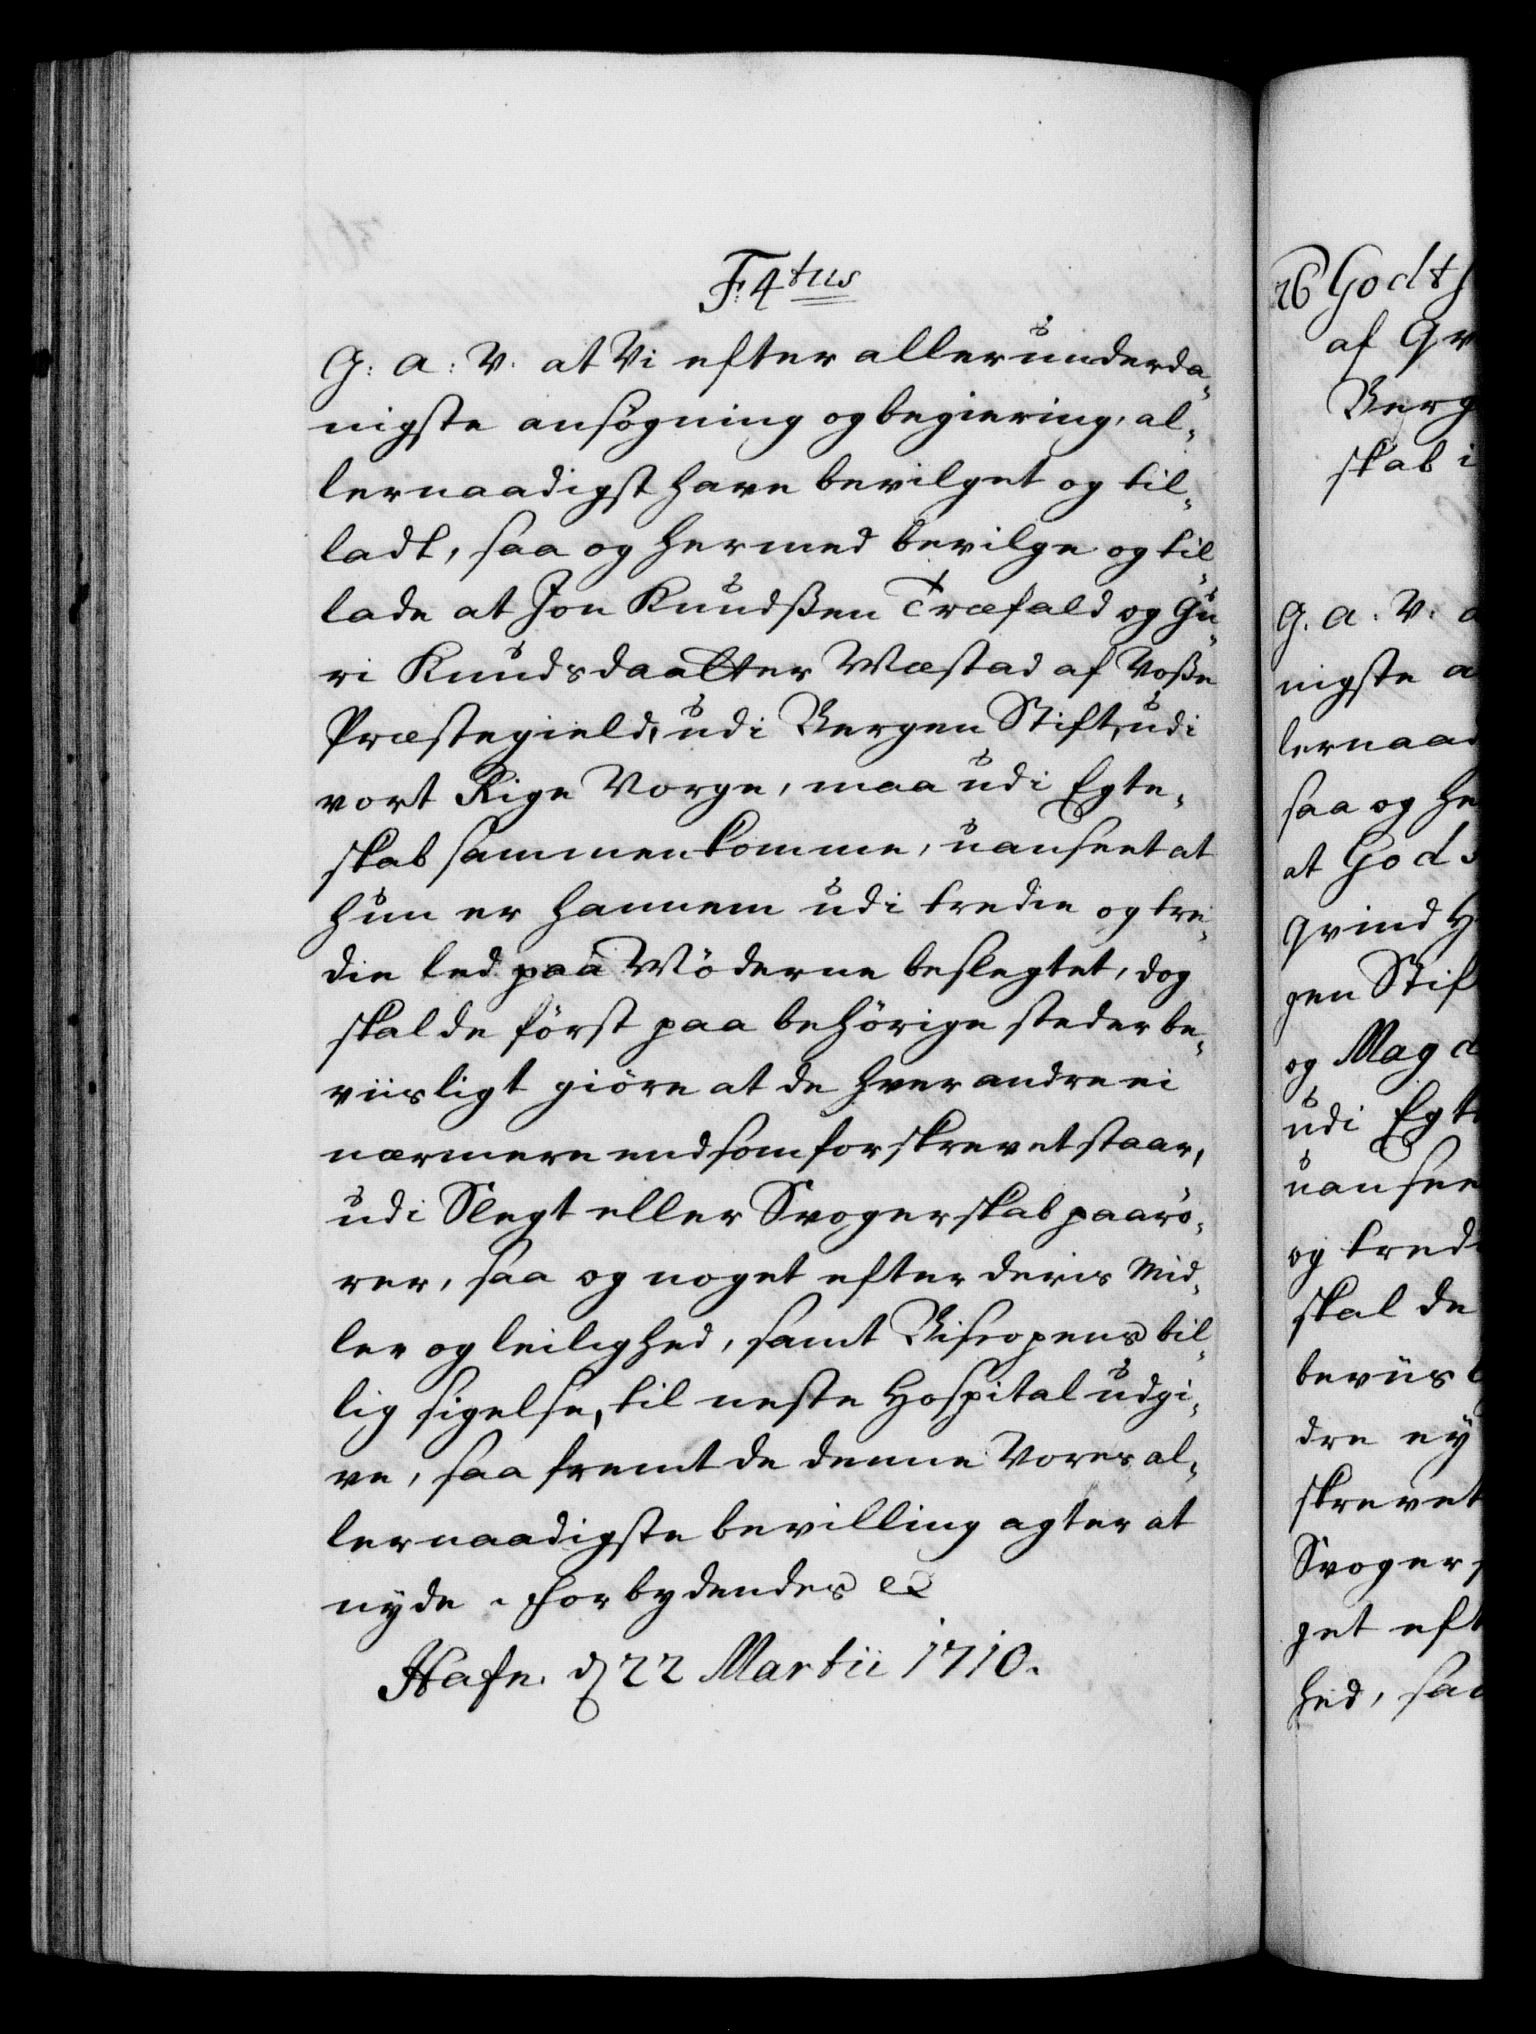 F. 4tus
G: A: V. at Vi efter allerunderda,
nigste ansøgning og begiering, al,
lernaadigst have bevilget og til,
ladt, saa og hermed bevilge og til
lade at Jon Knudßen Træfald og Gu,
ri Knudsdaatter Mæstad af Voße
Præstegield, udi Bergen Stift, udi
vort Rige Norge, maa udi Egte,
skab sammenkomme, uanseet at
hun er hannem udi tredie og tre,
die led paa Møderne beslegtet, dog
skal de først paa behørige steder be,
viisligt giøre at de hver andre ei
nærmere end som forskrevet staar,
udi Slegt eller Svogerskab paarö,
rer, saa og noget efter deris Mid,
ler og leilighed, samt Biscopens bil,
lig sigelse, til neste Hospital udgi,
ve, saa fremt de denne Vores al,
lernaadigste bevilling agter at
nyde. Forbydendes &
Hafn. d 22 Martii 1710.
26 Godt
af
Berg
skab i
G. A. V. a
nigste a
lernaad
saa og he
at Gods
qvind H
gen Stif
og Magd
udi Egte
uansee
og tredi
skal de
beviis
dre ey
skrevet
Svoger
get eft
hed, sa